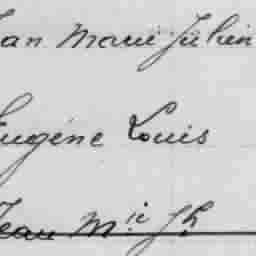 Jean Marie Julien
Eugène Louis
Jean M.ie Jh